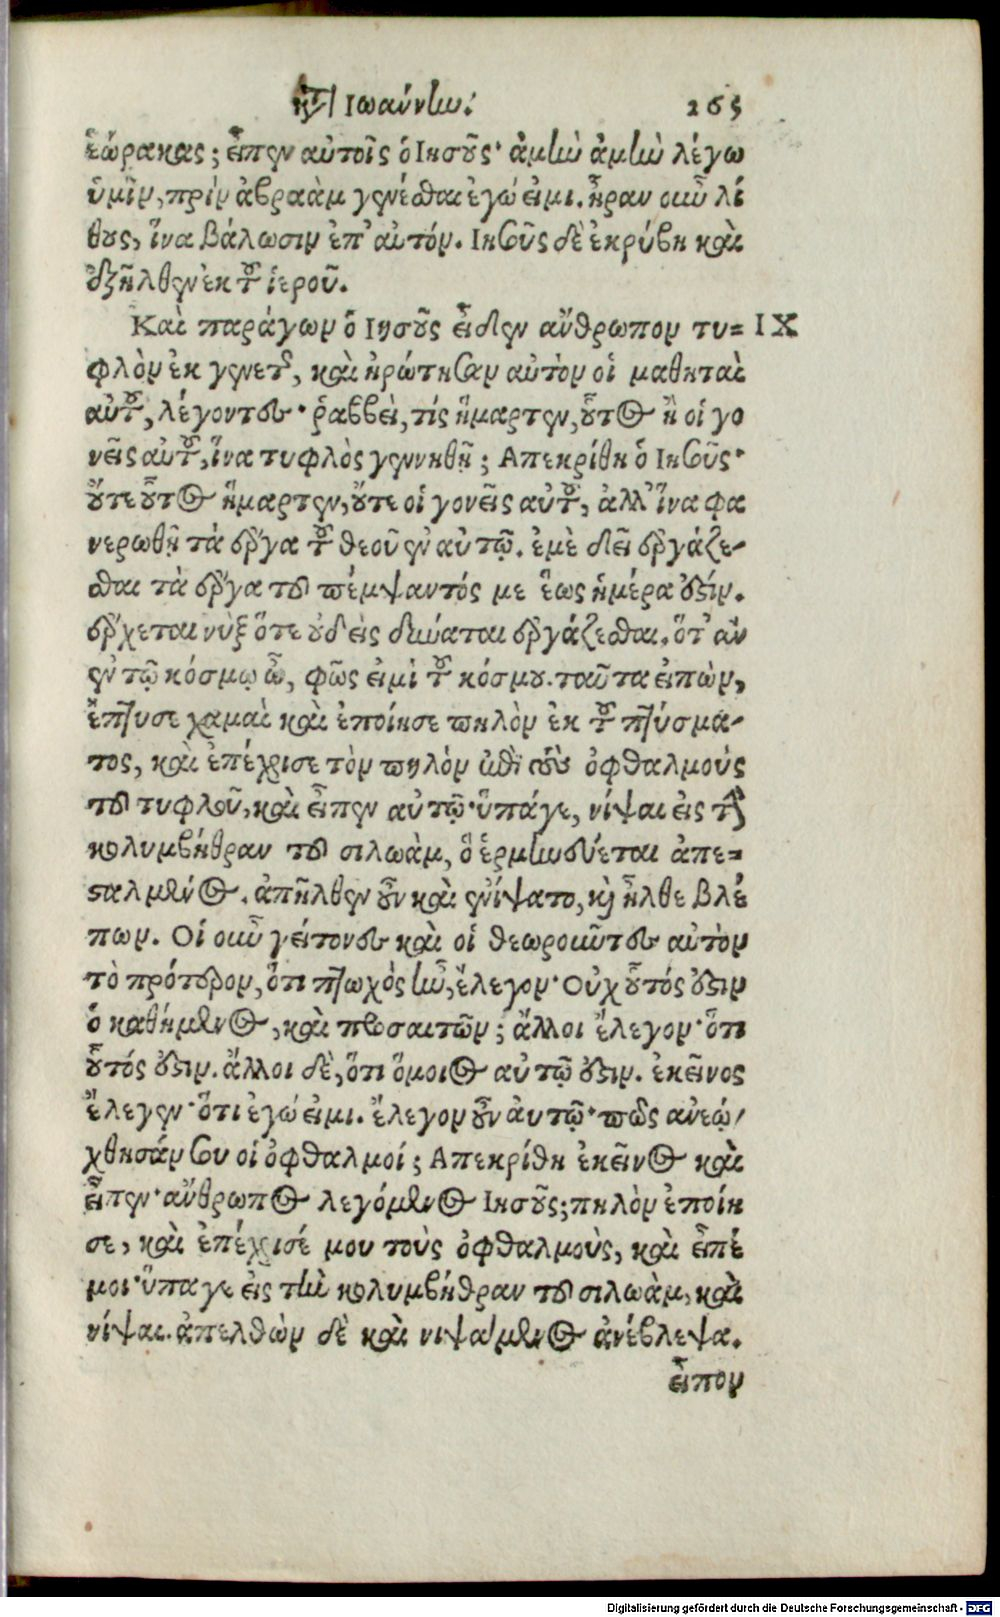 κατ Ιωάννην. 265
ἑώρακας; εἶπεν αὐτοῖς ὁ Ιησοῦς· ἀμὴν ἀμὴν λέγω
ὑμῖν, πρὶν ἀβραὰμ γενέσθαι ἐγώ εἰμι. ἦραν οὖν λί
θους, ἵνα βάλωσιν ἐπ' αὐτόν. Ιησοῦς δὲ ἐκρύβη καὶ
ἐξῆλθεν ἐκ τοῦ ἱεροῦ.
Καὶ παράγων ὁ Ιησοῦς εἶδεν ἄνθρωπον τυ= IX
φλὸν ἐκ γενετῆς, καὶ ἠρώτησαν αὐτὸν οἱ μαθηταὶ
αὐτοῦ, λέγοντες· ῥαββεὶ, τίς ἥμαρτεν, οὗτος ἢ οἱ γο
νεῖς αὐτοῦ, ἵνα τυφλὸς γεννηθῇ; Απεκρίθη ὁ Ιησοῦς·
οὔτε οὗτος ἥμαρτεν, οὔτε οἱ γονεῖς αὐτοῦ, ἀλλ' ἵνα φα
νερωθῇ τὰ ἔργα τοῦ θεοῦ ἐν αὐτῷ. ἐμὲ δεῖ ἐργάζε-
σθαι τὰ ἔργα τοῦ πέμψαντός με ἕως ἡμέρα ἐστίν.
ἔρχεται νὺξ ὅτε οὐδεὶς δύναται ἐργάζεσθαι. ὅτ' ἂν
ἐν τῷ κόσμῳ ὦ, φῶς εἰμὶ τοῦ κόσμου. ταῦτα εἰπὼν,
ἔπτυσε χαμαὶ καὶ ἐποίησε πηλὸν ἐκ τοῦ πτύσμα-
τος, καὶ ἐπέχρισε τὸν πηλὸν ἐπὶ τοὺς ὀφθαλμοὺς
τοῦ τυφλοῦ, καὶ εἶπεν αὐτῷ· ὕπάγε, νίψαι εἰς τὴν
κολυμβήθραν τοῦ σιλωὰμ, ὃ ἑρμηνεύεται ἀπε=
σταλμένος. ἀπῆλθεν οὖν καὶ ἐνίψατο, καὶ ἦλθε βλέ
πων. Οἱ οὖν γείτονες καὶ οἱ θεωροῦντες αὐτὸν
τὸ πρότερον, ὅτι πτωχὸς ἦν, ἔλεγον· Οὐχ οὗτός ἐστιν
ὁ καθήμενος, καὶ προσαιτῶν; ἄλλοι ἔλεγον· ὅτι
οὗτός ἐστιν. ἄλλοι δὲ, ὅτι ὅμοιος αὐτῷ ἐστιν. ἐκεῖνος
ἔλεγεν· ὅτι ἐγώ εἰμι. ἔλεγον οὖν αὐτῷ· πῶς ἀνεῴ/
χθησάν σου οἱ ὀφθαλμοί; Απεκρίθη ἐκεῖνος καὶ
εἶπεν· ἄνθρωπος λεγόμενος Ιησοῦς; πηλὸν ἐποίη
σε, καὶ ἐπέχρισέ μου τοὺς ὀφθαλμοὺς, καὶ εἶπέ
μοι· ὕπαγε εἰς τὴν κολυμβήθραν τοῦ σιλωὰμ, καὶ
νίψαι. ἀπελθὼν δὲ καὶ νιψάμενος ἀνέβλεψα.
εἶπον
Digitalisierung gefördert durch die Deutsche Forschungsgemeinschaft - DFG